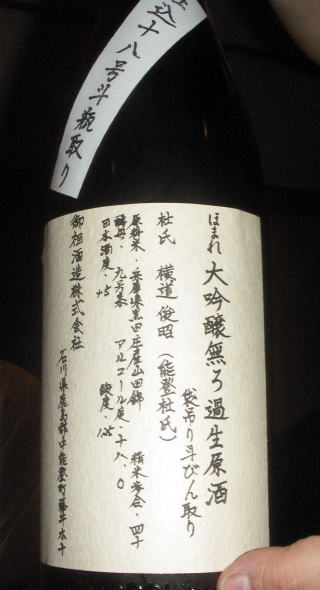 仕込十八号斗瓶取り
ほまれ 大吟醸無ろ過生原酒
袋吊り斗びん取り
杜氏 横道俊昭(能登杜氏)
原料米、兵庫県黒田庄産山田錦 精米歩合、四十
酵母、九号系 アルコール度、十八、〇
日本酒度、+5 酸度、
御祖酒造株式会社
石川県鹿島郡中能登町藤井ホ十